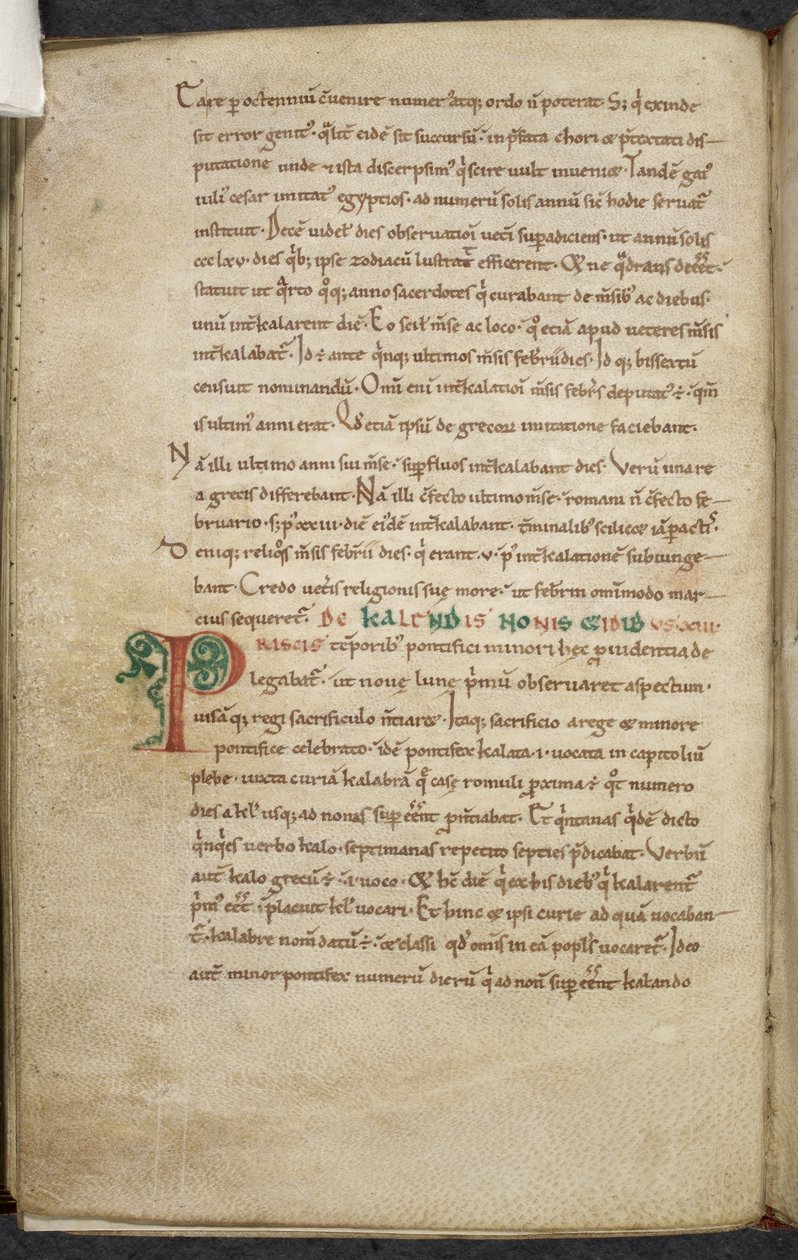 Care p octenniũ c̃uenire numerꝰ atq; ordo ñ poterat. S; qͥ exinde
sit error genitꝰ. qͣlit̃ eidẽ sit succursũ. in p̃fata chori & p̃textati dis-
putatione unde & ista discerpsimꝰ qͥ scire uult inueni&. Tandẽ gaiꝰ
iuliꝰ cesar imitatꝰ egyptios. ad numerũ solis annũ sic̃ hodie seruat̃
instituit. Decẽ uidel& dies obseruatioĩ uet̃i sup adiciens. ut annũ solis
ccclxv. dies qͥb; ipse zodiacũ lustrat efficerent. & ne qͣdrans de&̃.
statuit ut qͣrto qͦq; anno sacerdotes qͥ curabant de m̃sibꝰ ac diebus.
unũ int̃kalarent diẽ. Eo scil& m̃se ac loco. qͦ etiã apud ueteres m̃sis
int̃kalabat̃. Id ÷ ante qͥnq; ultimos m̃sis febr̃ii dies. Id q; bissextũ
censuit nominandũ. Om̃ enĩ int̃kalatioĩ m̃sis febr̃s deputatꝰ ÷. qm̃
is ultimꝰ anni erat. Qd̃ etiã ipsũ de grecoꝝ imitatione faciebant.
Nã illi ultimo anni sui m̃se. supfluos int̃kalabant dies. Verũ una re
a grecis differebant. Nã illi c̃fecto ultimo m̃se. romani ñ c̃fecto fe-
bruario. s; pꝰ xxiii. diẽ eiꝰdẽ int̃kalabant. t̃minalibꝰ scilic& iã pactiꝭ.
Deniq; reliqͦs m̃sis febr̃ii dies. qͥ erant. v. pꝰ int̃kalationẽ subiunge-
bant. Credo uet̃is religionis suę more. ut febr̃m om̃imodo mar-
cius sequeret̃. DE KALENDIS NONIS & IDIBVS. XIII.
PRISCIS tẽporibꝰ pontifici minori hęc puidentia de
legabat̃. ut nouę lunę pͥmũ obseruaret aspectum.
uisãq; regi sacrificulo ñtiar&. Itaq; sacrificio a rege & minore
pontifice celebrato. idẽ pontifex kalata .i. uocata in capitoliũ
plebe. iuxta curiã kalabrã qͣ̃ casę romuli pxima ÷ qͦt numero
dies a kl̃ usq; ad nonas sup ẽẽnt pñtiabat. Et qͥntanas qͥdẽ dicto
qͥnqͥes uerbo kalo. septimanas repetito septies p̃dicabat. Verbũ
aut̃ kalo grecũ ÷ .i. uoco. & hc̃ diẽ qͥ ex his diebꝰ qͥ kalarent̃
pͥmꝰ ẽẽt. placuit kl̃ uocari. Et hinc & ipsi curie ad quã uocaban-
t̃. kalabre nom̃ datũ ÷. & classi qd̃ om̃is in eã popl̃s uocaret̃. Ideo
aut̃ minor pontifex numerũ dierũ qͥ ad noñ sup ẽẽnt kalando